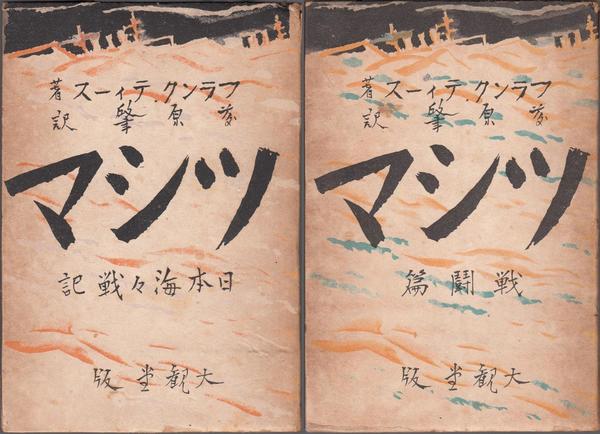 フランク.ティース著
藤原肇訳
ツシマ
日本海々戦記
大観堂版
フランク.ティース著
藤原肇訳
ツシマ
戦闘篇
大観堂版